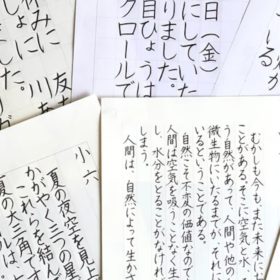 日（金）
にしていた
りました。
目ひょうは
クロールで
友
みに
川
ました。
むかしも今も、また未来に
ことがある。そこに空気と水
う自然があって、人間や他
微生物にいたるまでが、それに
いるということである。
自然こそ不変の価値なのであ
人間は空気を吸うことなく生
し、水分をとることがなけれ
しまう。
人間は、自然によって生か
小六
夏の夜空を見上
かがやく三つの星
これらを結ん
夏の大三角